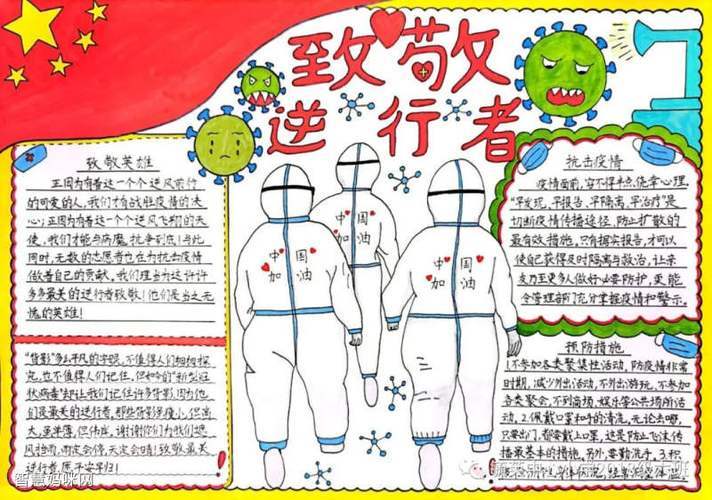 致敬
逆行者
致敬英雄
正因为有着这一个个逆风前行
的可爱的人,我们才有战胜疫情的决
心;正因为有着这一个个逆风飞翔的天
使,我们才能与病魔抗争到底!与此
同时,无数的志愿者也在为抗击疫情
做着自己的贡献,我们理当为这许许
多多最美的逆行者致敬!他们是当之无
愧的英雄!
"背影"多么平凡的字眼,不值得人们细细探
究,也不值得人们记住,但如今的"新型冠
状病毒"却让我们记住许多背影,因为他
们是最美的逆行者,那些背影虽瘦小,但高
大,虽单薄,但伟岸,谢谢你们为我们遮
风挡雨,雨定会停,天定会晴!致敬最美
逆行者,愿平安早归!
中国
加油
中国
加油
中国
加油
抗击疫情
疫情面前,容不得半点侥幸心理,
"早发现,早报告,早隔离,早治疗"是
切断疫情传播途径,防止扩散的
最有效措施,只有拥实报告,才可以
使自己获得及时隔离与救治,让亲
友乃至更多人做好必要防护,更能
令管理部门充分掌握疫情和警示。
预防措施
1.不参加各类聚集性活动,防疫情非常
时期,减少外出活动,不外出游玩,不参加
各类聚会,不到商场,娱乐等公共场所活
动,2.佩戴口罩和手的清洗,无论去哪,
只要出门,都要戴上口罩,这是防止飞沫传
播最基本的措施,另外,要勤洗手,3.积
智慧妈咪网